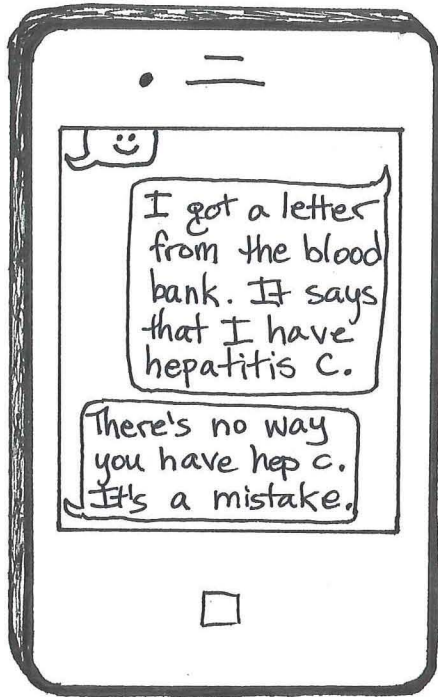 I got a letter
from the blood
bank. It says
that I have
hepatitis C.
There's no way
you have hep C.
It's a mistake.